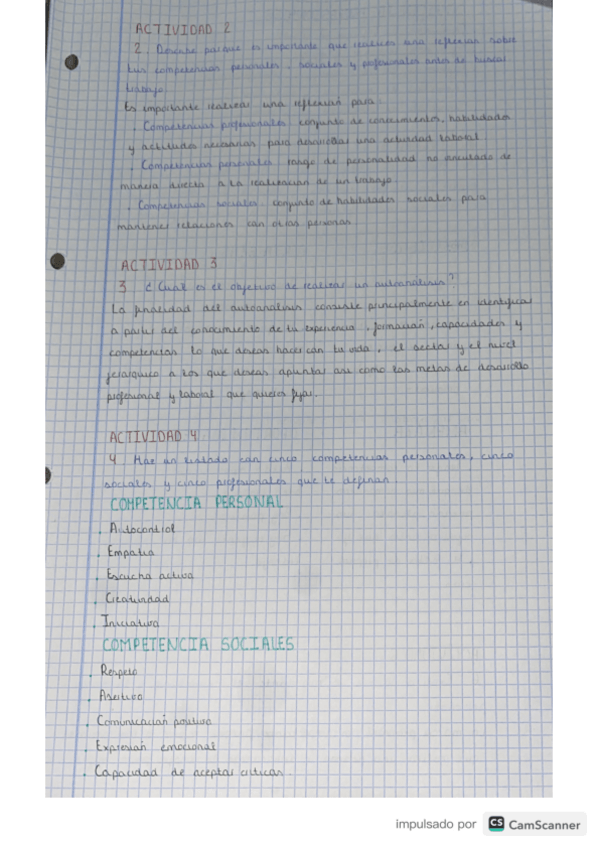 ACTIVIDAD 2
2. Describe porque es importante que realices una reflexion sobre
tus competencias personales, sociales y profesionales antes de buscar
trabajo
Es importante realizar una reflexión para:
. Competencias profesionales: conjunto de conocimientos, habilidades
y actitudes necesarias para desarrollar una actividad laboral
. Competencias personales: rasgo de personalidad no vinculado de
manera directa a la realizacion de un trabajo
. Competencias sociales: conjunto de habilidades sociales para
mantener relaciones con otras personas
ACTIVIDAD 3
3 ¿Cual es el objetivo de realizar un autoanalisis?
La finalidad del autoanalisis consiste principalmente en identificar
a partir del conocimiento de tu experiencia, formación, capacidades y
competencias lo que deseas hacer con tu vida, el sector y el nivel
jerarquico a los que deseas apuntar asi como las metas de desarrollo
profesional y laboral que quieres fijar.
ACTIVIDAD 4
4 Haz un listado con cinco competencias personales, cinco
sociales y cinco profesionales que te definan
COMPETENCIA PERSONAL
. Autocontrol
. Empatia
. Escucha activa
. Creatividad
. Iniciativa
COMPETENCIA SOCIALES
. Respeto
. Asertivo
. Comunicación positiva
. Expresión emocional
. Capacidad de aceptar criticas
impulsado por CS CamScanner